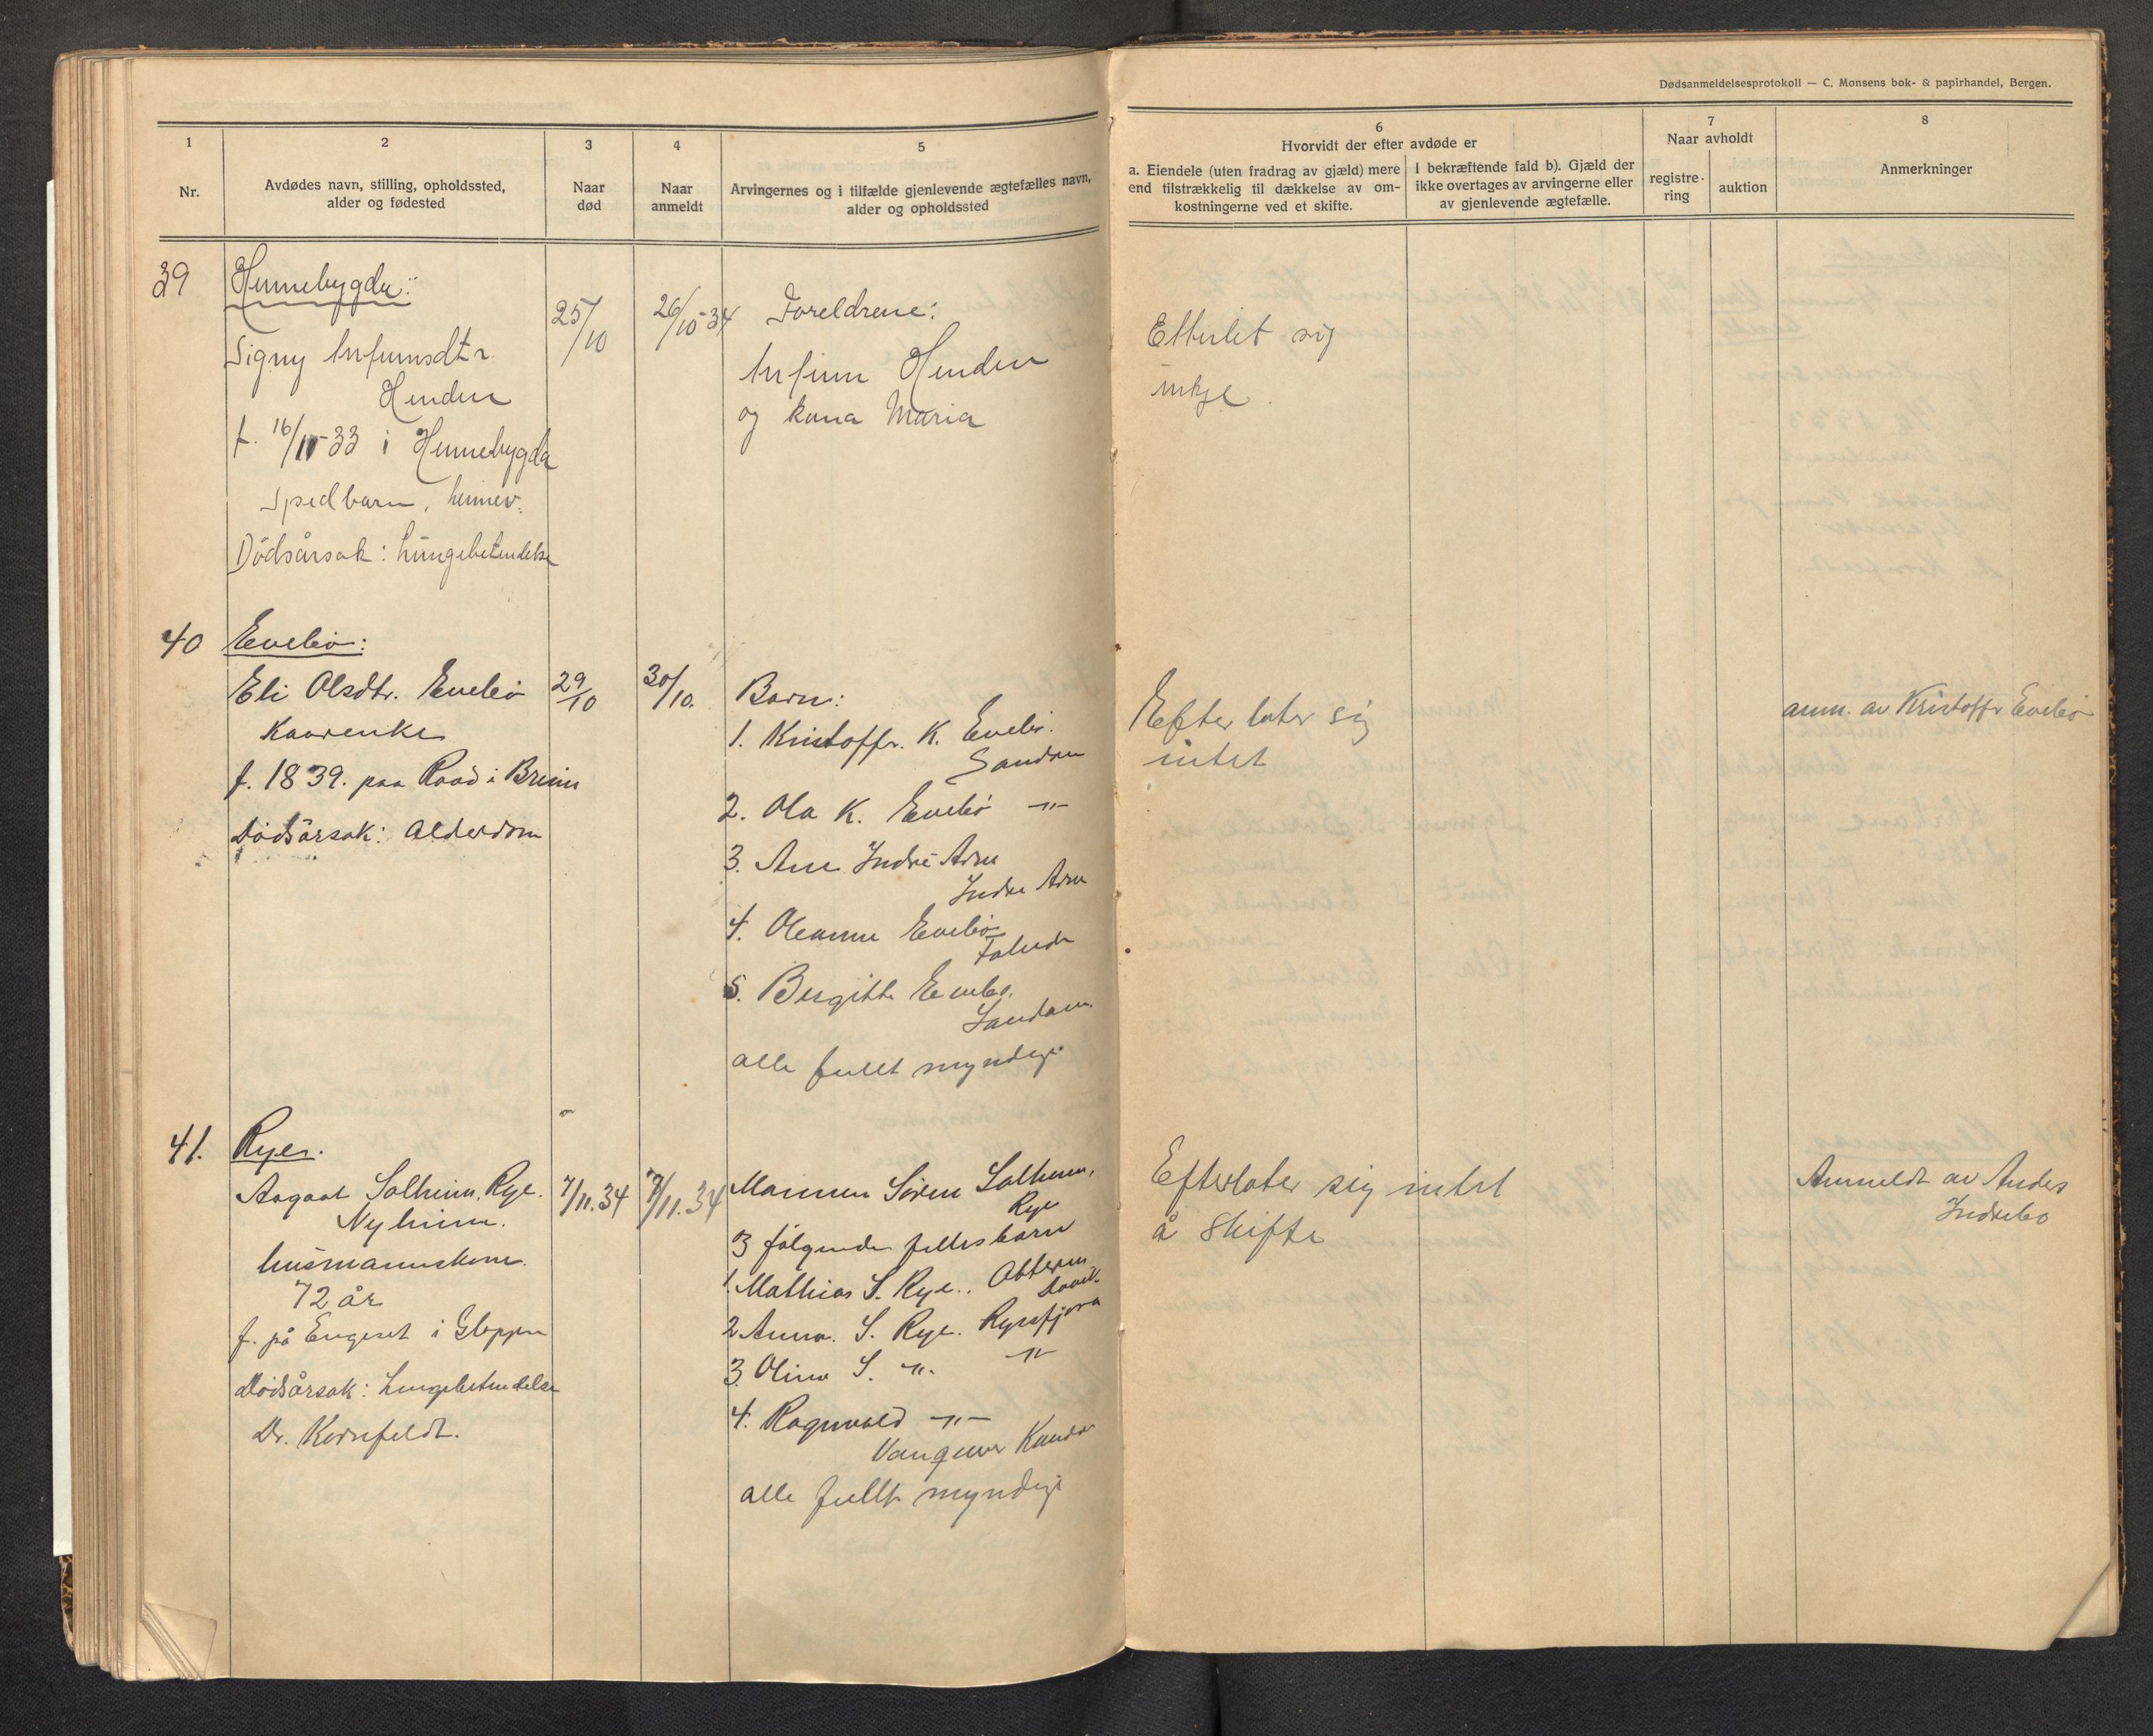 Dødsanmeldelsesprotokoll — C. Monsens bok- & papirhandel, Bergen.
1
Nr.
2
Avdødes navn, stilling, opholdssted,
alder og fødested
3
Naar
død
4
Naar
anmeldt
5
Arvingernes og i tilfælde gjenlevende ægtefælles navn,
alder og opholdssted
6
Hvorvidt der efter avdøde er
a. Eiendele (uten fradrag av gjæld) mere
end tilstrækkelig til dækkelse av om-
kostningerne ved et skifte.
I bekræftende fald b). Gjæld der
ikke overtages av arvingerne eller
av gjenlevende ægtefælle.
7
Naar avholdt
registre-
ring
auktion
8
Anmerkninger
39
Hennebygda:
Signy Anfinnsdtr.
Henden
f. 16/11-33 i Hennebygda
Spedbarn, heimev.
Dödsårsak: Lungebetendelse
25/10
26/10-34
Foreldrene:
Anfinn Henden
og kona Maria
Etterlet sig
inkje.
40
Evebö:
Eli Olsdtr. Evebö
Kaarenke
f. 1839. paa Raad i Breim
Dödsårsak: Alderdom
29/10
30/10.
Barn:
1. Kristoffr. K. Evebö.
Sandane
2. Ola K. Evebö -"-
3. Ane Indre Arne
Indre Arne
4. Oleanne Evebö
5. Birgitte Evebö.
Sandane
alle fullt myndige
Efterlater sig
intet
anm. av Kristoffr Evebö
41.
Rye.
Aagaat Solheim, Rye.
Nyheim.
husmannskone.
72 år
f. på Engeset i Gloppen
Dödsårsak: Lungebetendelse
Dr. Kornfeldt.
7/11.34
9/11.34
Mannen Sören Solheim,
Rye
3 fölgende fellesbarn
1. Mathias S. Rye.. Ottern
Davik.
2 Anna. S. Rye. Rysfjøra
3. Olina S. -"- -"-
4. Ragnvald -"-
Vanquver Kanada
alle fullt myndige
Efterlater sig intet
å skifte
Anmeldt av Anders
Indrebø